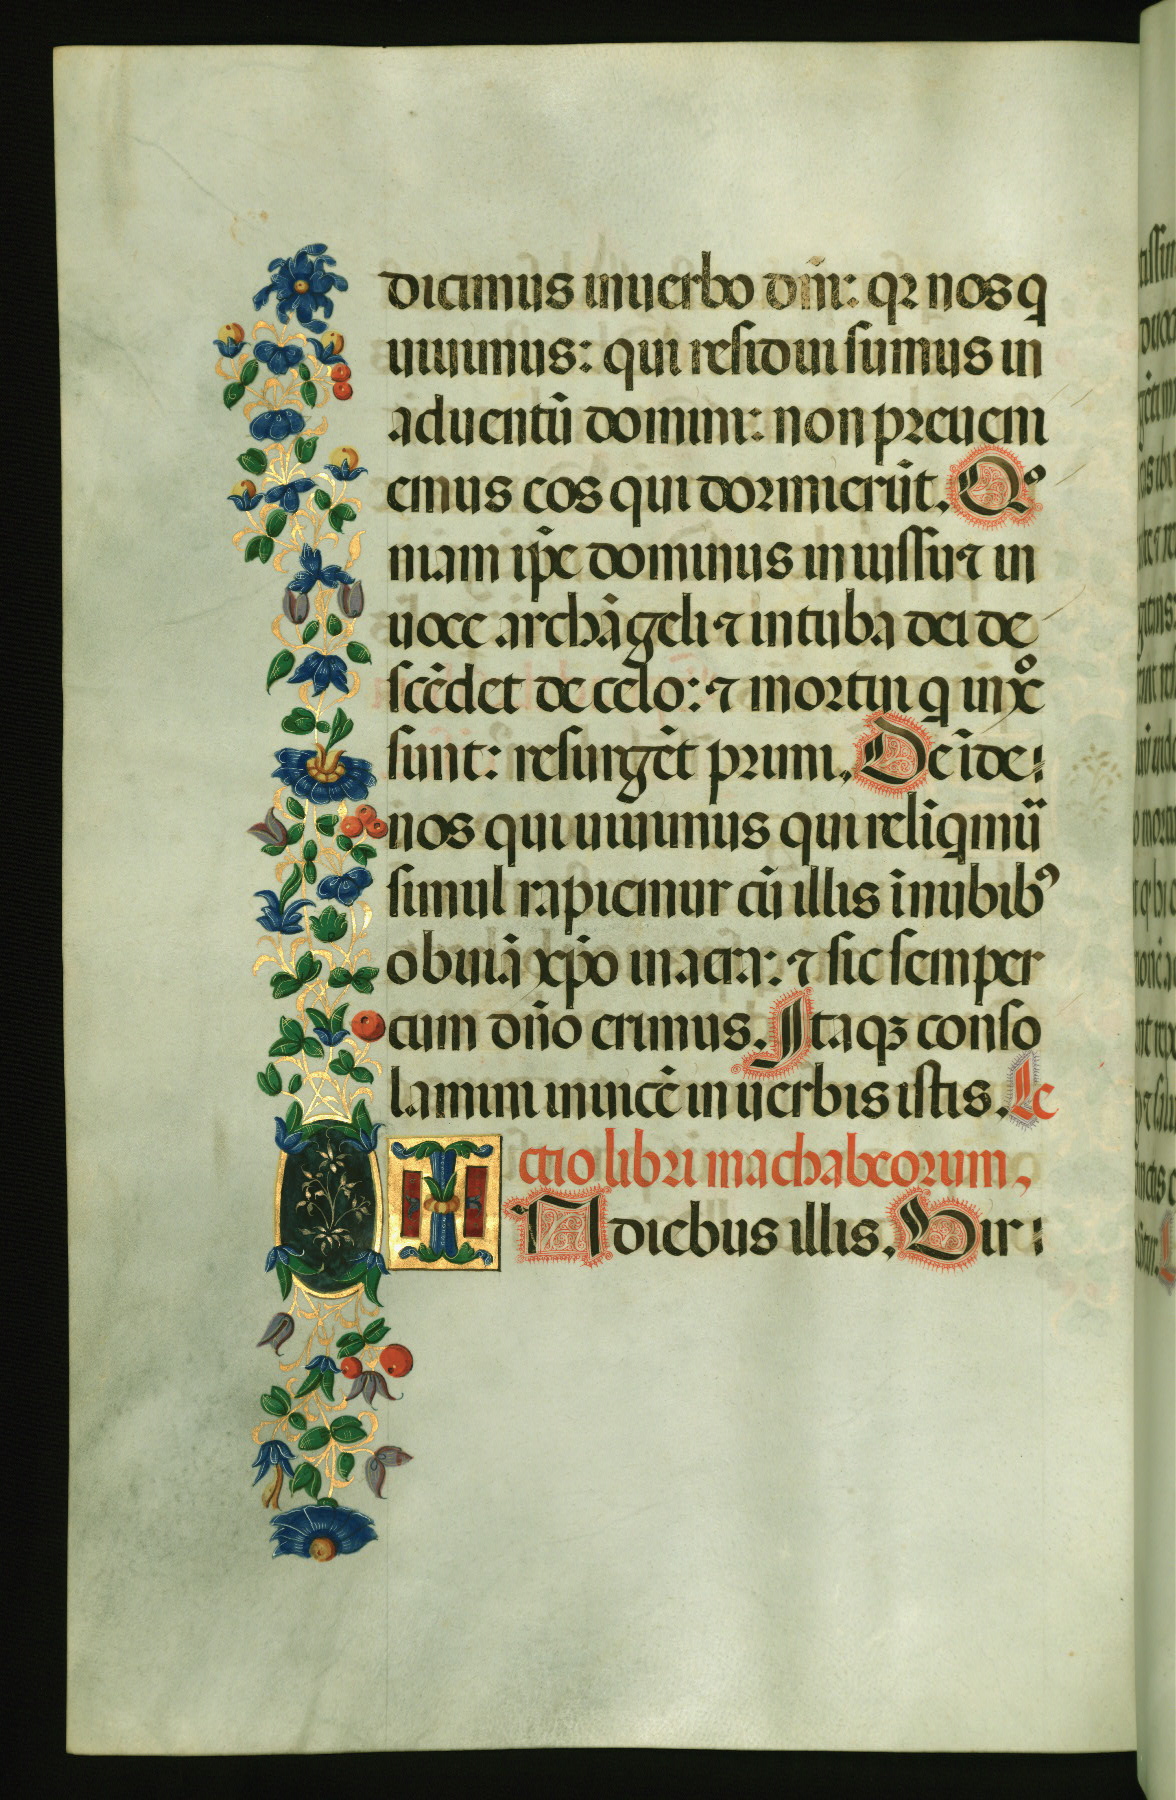 dicimus in uerbo dñi: qꝛ nos q
uiuimus: qui residui sumus in
aduentū domini: non preueni
emus eos qui dormierūt. Qº
niam ip̄e dominus in iussu ⁊ in
uoce archāgeli ⁊ in tuba dei de
scēdet de celo: ⁊ mortui q in xº
sunt: resurgēt primi. Deīde:
nos qui uiuimus qui relīqmur
simul rapiemur cū illis ī nubibꝰ
obuiā xp̄o in aera: ⁊ sic semper
cum dño erimus. Itaqꝫ conso
lamini inuicē in uerbis istis. Le
ctio libri machabeorum.
IN diebus illis. Uir: